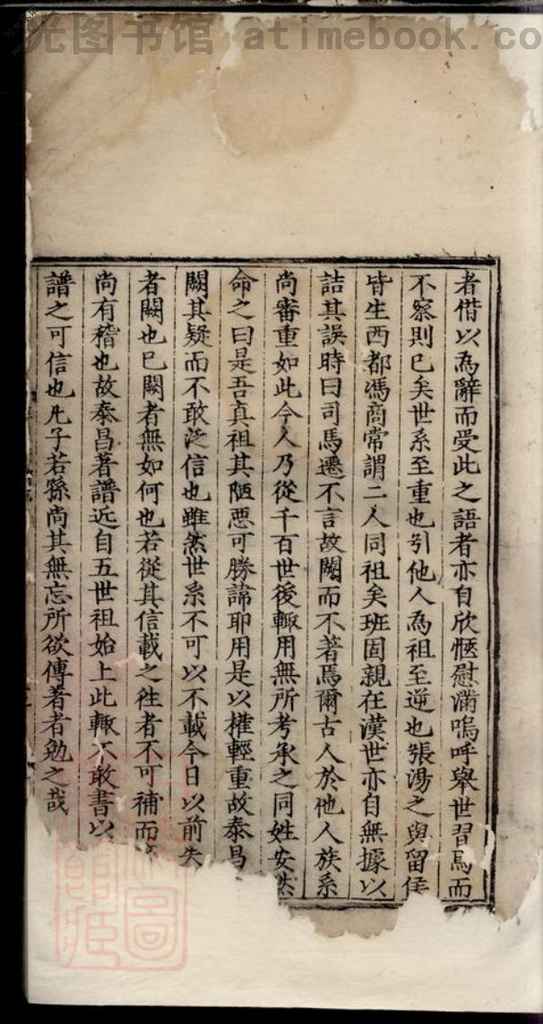 光图书馆 atimebook.co
者借以為辭而受此之語者亦自欣愜慰滿嗚呼舉世習焉而
不察則已矣世系至重也引他人為祖至逆也張湯之與留侯
皆生西都馮商常謂二人同祖矣班固親在漢世亦自無據以
詰其誤時曰司馬遷不言故闕而不著焉爾古人於他人族系
尚審重如此今人乃從千百世後輙用無所考承之同姓安然
命之曰是吾真祖其陋惡可勝諦耶用是以權輕重故泰昌
闕其疑而不敢泛信也雖然世系不可以不載今日以前失
者闕也已闕者無如何也若從其信載之徃者不可補而
尚有稽也故泰昌著譜近自五世祖始上此輙不敢書以
譜之可信也凡子若孫尚其無忘所欲傳著者勉之哉
圖